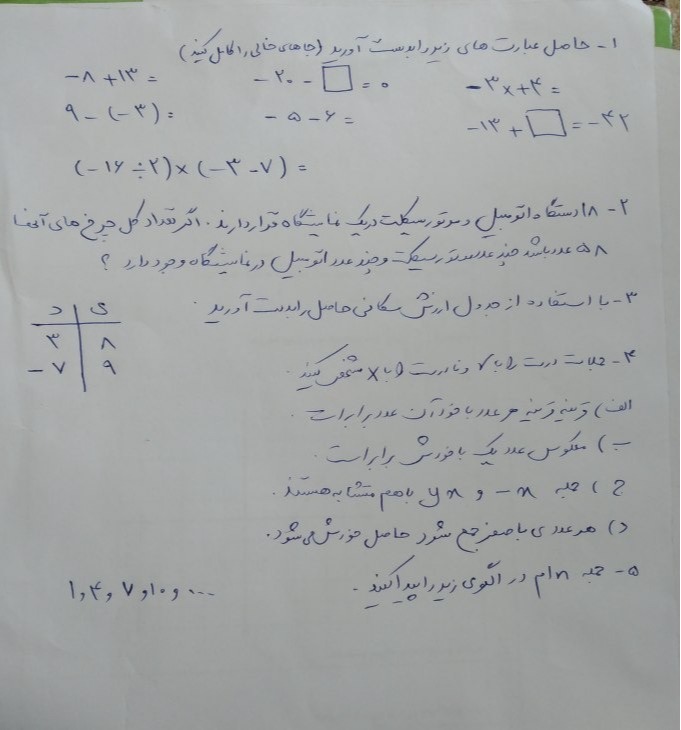 ۱- حاصل عبارت های زیر را بدست آورید (جاهای خالی را کامل کنید)
-۸ + ۱۳ = -۲۰ - □ = ۰ -۳ × + ۴ =
۹ - (-۳) = -۵ - ۶ = -۱۳ + □ = -۴۲
(-۱۶ ÷ ۲) × (-۳ - ۷) =
۲- ۱۸ دستگاه اتومبیل و موتورسیکلت در یک نمایشگاه قرار دارند. اگر تعداد کل چرخ های آنها
۵۸ عدد باشد چند عدد موتورسیکلت و چند عدد اتومبیل در نمایشگاه وجود دارد ؟
۳- با استفاده از جدول ارزش مکانی حاصل را بدست آورید.
د ی
۳ ۸
-۷ ۹
۴- جملات درست را با ✓ و نادرست را با × مشخص کنید.
الف) قرینه قرینه هر عدد با خود آن عدد برابر است.
ب) معکوس عدد یک با خودش برابر است.
ج) جمله -x و yx با هم متشابه هستند.
د) هر عددی با صفر جمع شود حاصل خودش می شود.
۵- جمله nام در الگوی زیر را پیدا کنید.
۱ , ۴ , ۷ , ۱۰ , ...